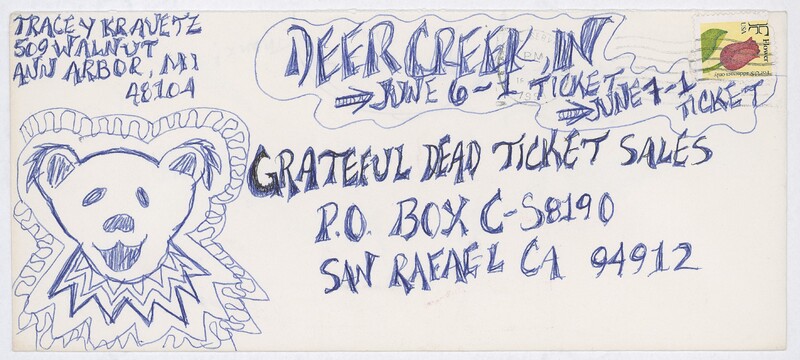 TRACEY KRAVETZ
509 WALNUT
ANN ARBOR, MI
48104
DEER CREEK, IN
JUNE 6-1 TICKET
JUNE 7-1 TICKET
F Flower
USA
GRATEFUL DEAD TICKET SALES
P.O. BOX C-S8190
SAN RAFAEL CA 94912